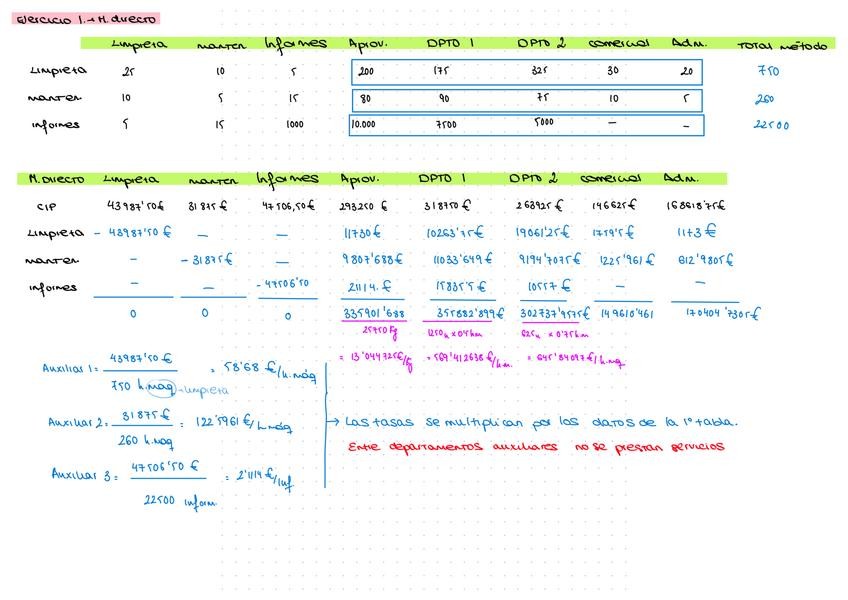 Ejercicio 1. → M. directo
Limpieza manten Informes Aprov. DPTO 1 DPTO 2 comercial Adm. TOTAL método
Limpieza 25 10 5 200 175 325 30 20 750
manten 10 5 15 80 90 75 10 5 260
informes 5 15 1000 10.000 7500 5000 — — 22500
M.DIRECTO Limpieza manten Informes Aprov. DPTO 1 DPTO 2 comercial Adm.
CIP 43987'50€ 31875€ 47506,50€ 293250€ 318750€ 263925€ 146625€ 168618'75€
Limpieza - 43987'50€ — — 11730€ 10263'75€ 19061'25€ 1759'5€ 1173€
manten - - 31875€ — 9807'688€ 11033'649€ 9194'7075€ 1225'961€ 612'9805€
informes - - - 47506'50 21114.€ 15835'5€ 10557€ — —
0 0 0 335901'688 355882'899€ 302737'9575€ 149610'461 170404'7305€
25750 kg 1250h x 0'5hm 625h x 0'75hm
= 13'044725€/kg = 569'412638€/h.m. = 645'84097€/h.mq
Auxiliar 1 = 43987'50€ / 750 h.maq = 58'68€/h.máq
→ limpieza
Auxiliar 2 = 31875€ / 260 h.maq = 122'5961€/h.máq
→ Las tasas se multiplican por los datos de la 1º tabla.
Entre departamentos auxiliares no se prestan servicios
Auxiliar 3 = 47506'50€ / 22500 inform. = 2'1114€/inf